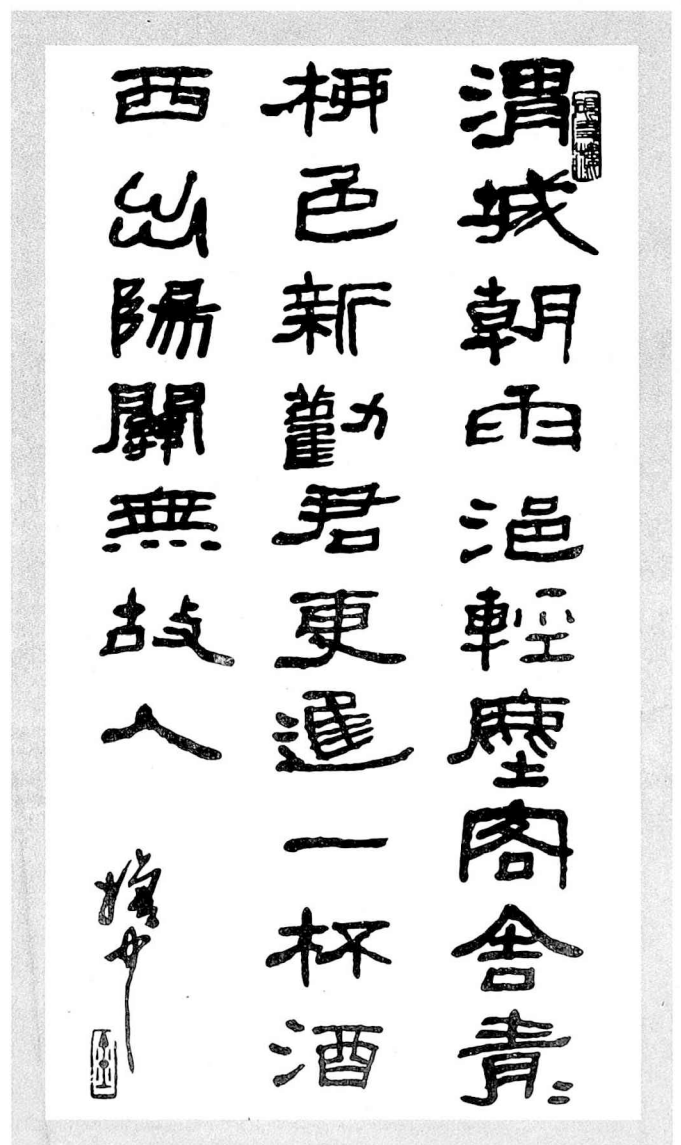 渭城朝雨浥輕塵客舍青〻
柳色新勸君更進一杯酒
西出陽關無故人